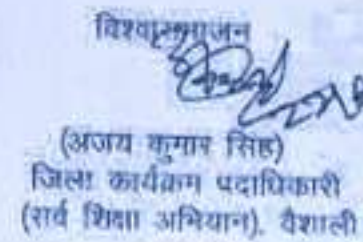 विश्वासभाजन
(अजय कुमार सिंह)
जिला कार्यक्रम पदाधिकारी
(सर्व शिक्षा अभियान), वैशाली